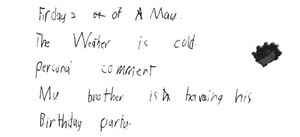 Firday 2 of A May.
The Weather is cold.
personal comment
My brother is haveing his
Birthday party.